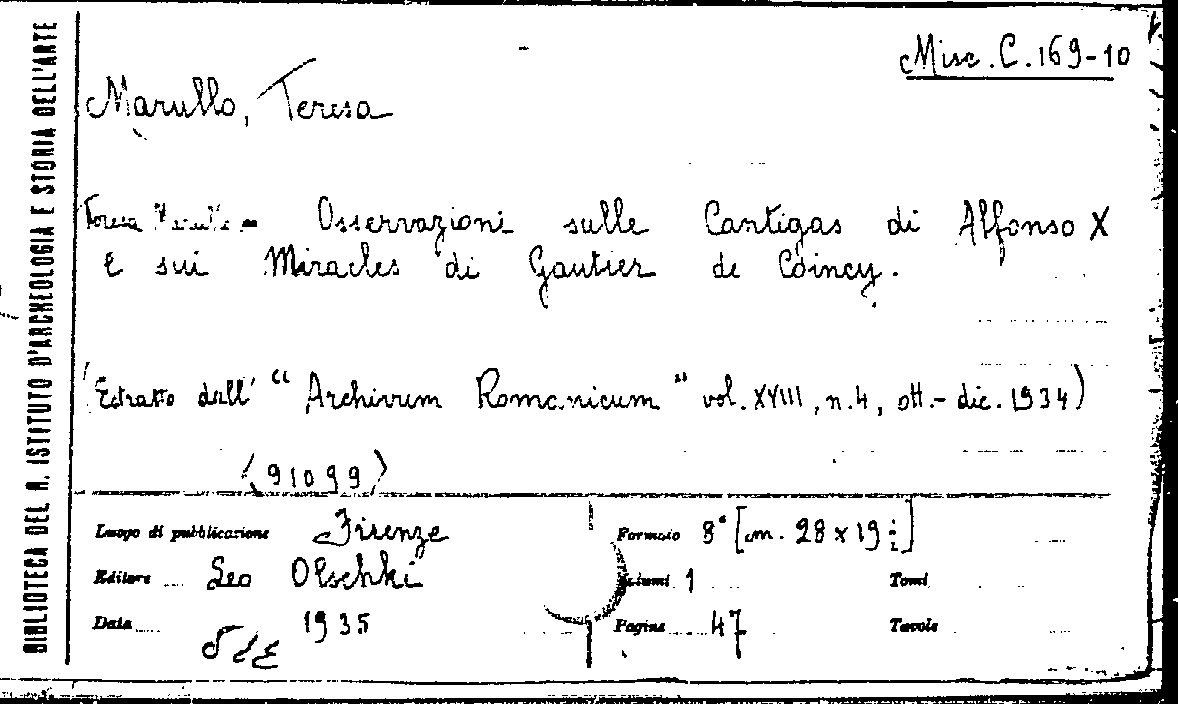 BIBLIOTECA DEL R. ISTITUTO D'ARCHEOLOGIA E STORIA DELL'ARTE
Misc. C. 169-10
Marullo, Teresa
Teresa Marullo = Osservazioni sulle Cantigas di Alfonso X
e sui Miracles di Gautier de Coincy.
(Estratto dall' "Archivum Romanicum" vol. XVIII, n. 4, ott.- dic. 1934)
(91099)
Luogo di pubblicazione Firenze
Formato 8° [cm. 28 x 19 ½]
Editore Leo Olschki
Volumi 1 Tomi
Data 1935
Pagine 47 Tavole